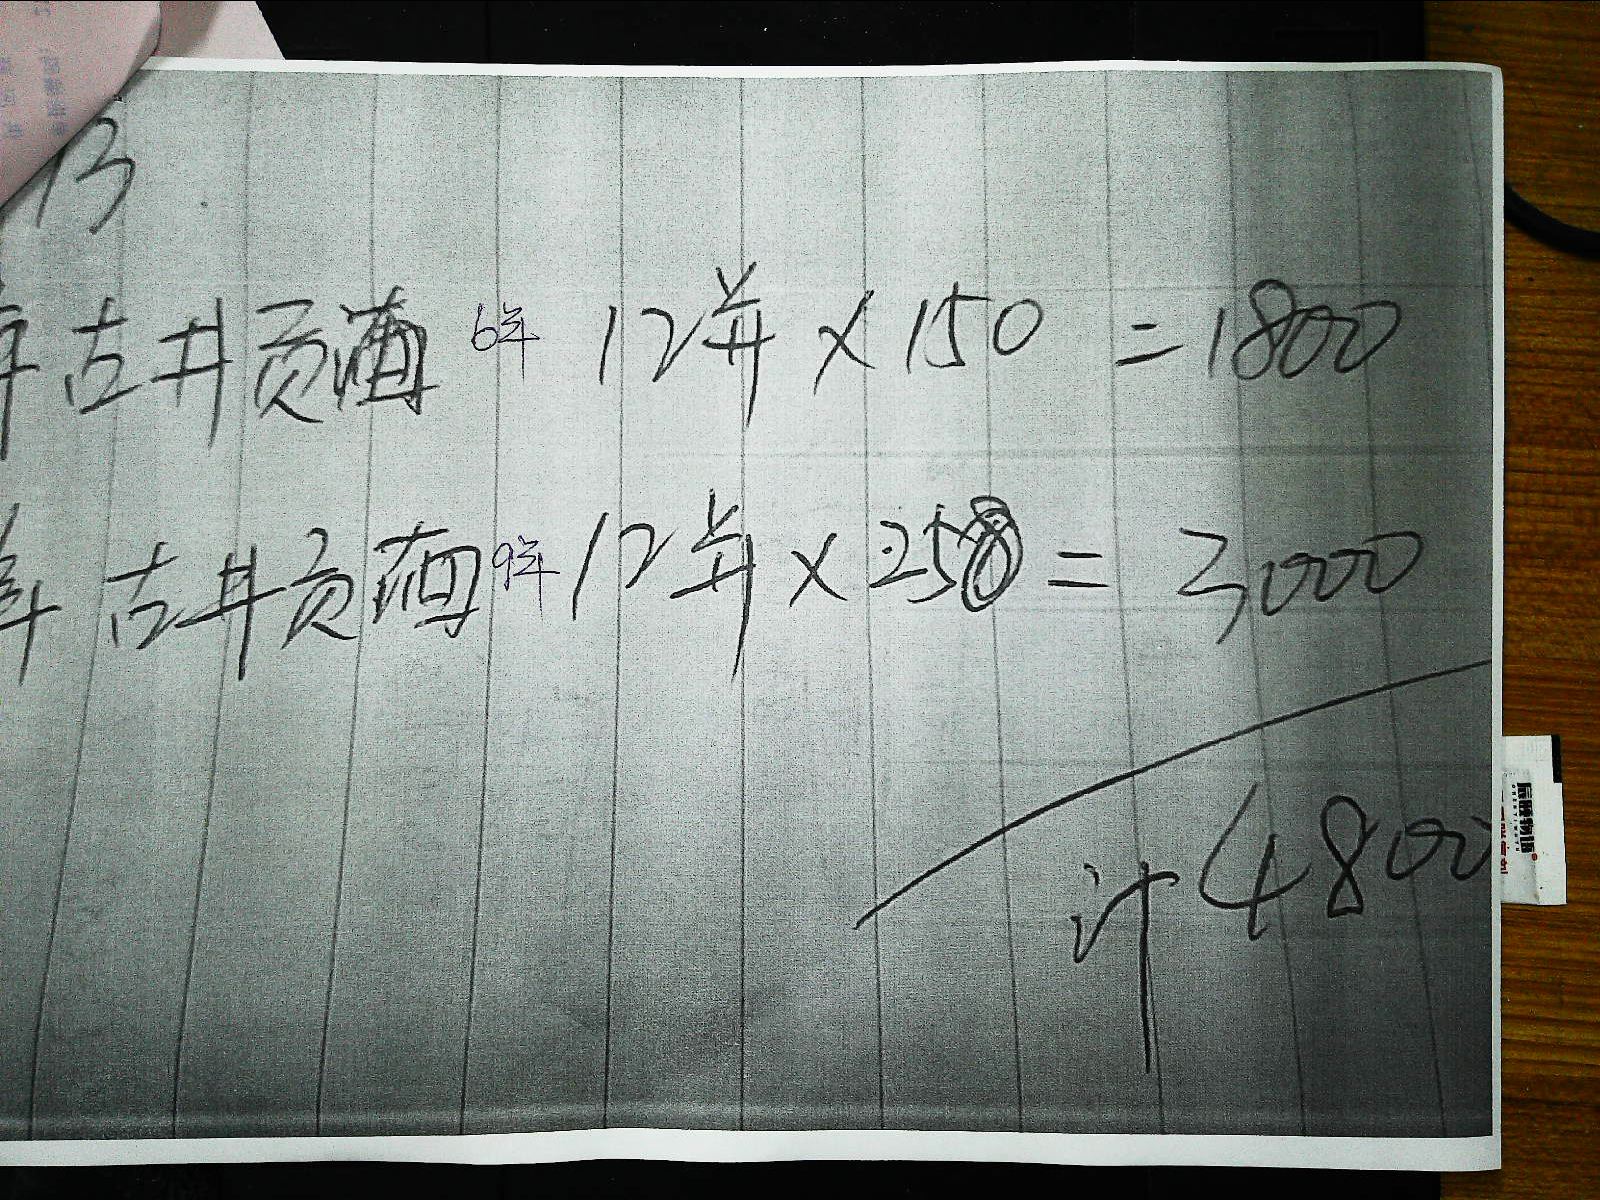 13
古井贡酒 6年 12并 × 150 = 1800
古井贡酒 9年 12并 × 250 = 3000
计 4800